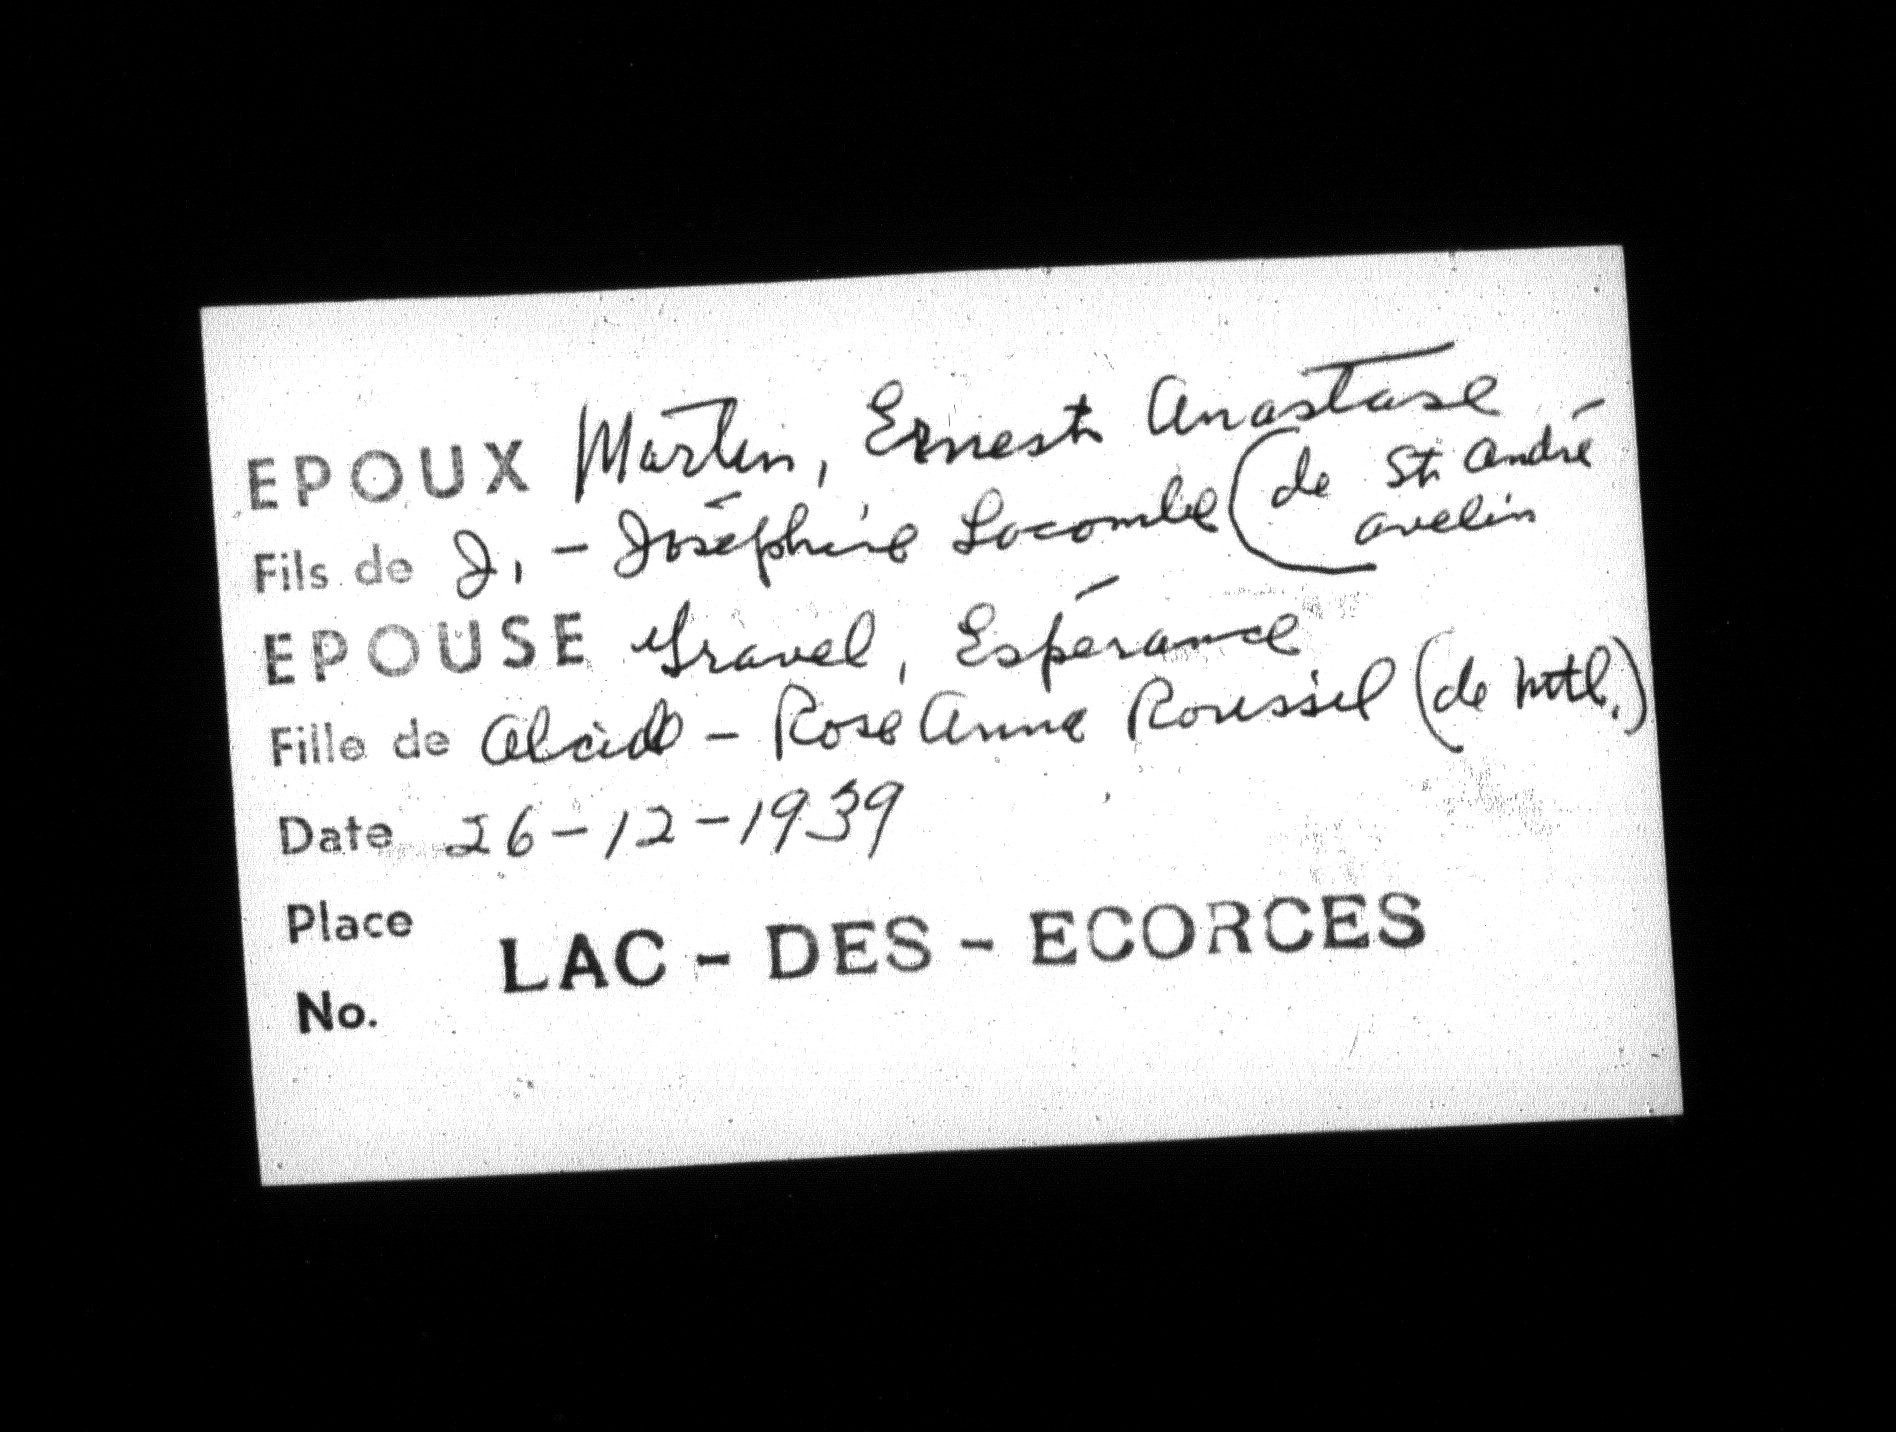 EPOUX Martin, Ernest Anastase
Fils de J. - Joséphine Lacombe (de St André
avelin
EPOUSE Gravel, Espérance
Fille de Alcide - Rose Anna Roussil (de Mtl.)
Date 26-12-1939
Place
LAC - DES - ECORCES
No.